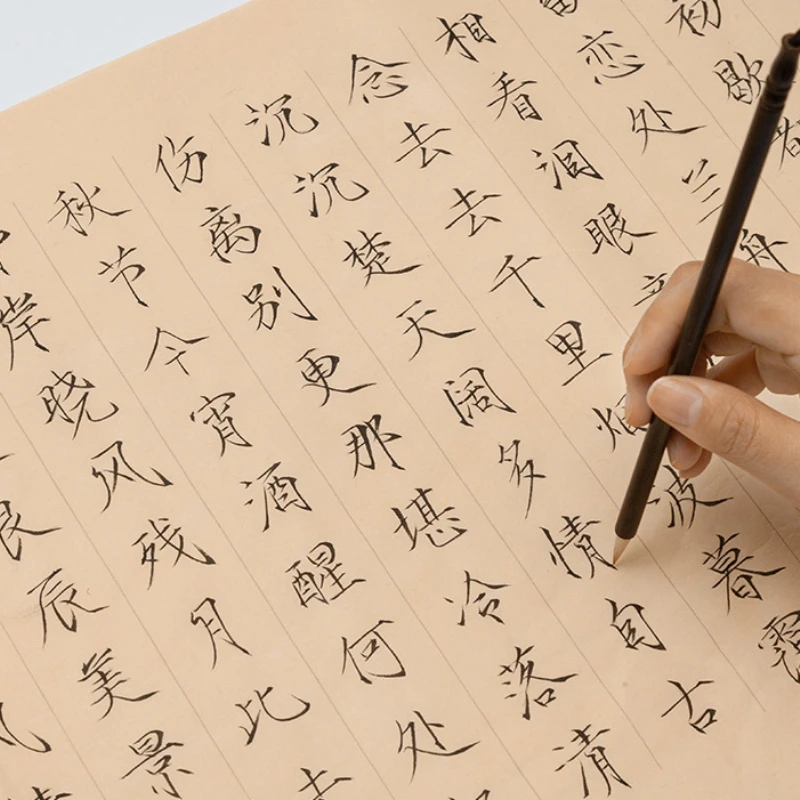 初歇都
恋处兰舟
相看泪眼
念去去千里烟波暮霭
沉沉楚天阔多情自古
伤离别更那堪冷落清
秋节今宵酒醒何处
岸晓风残月此去
良辰美景
风